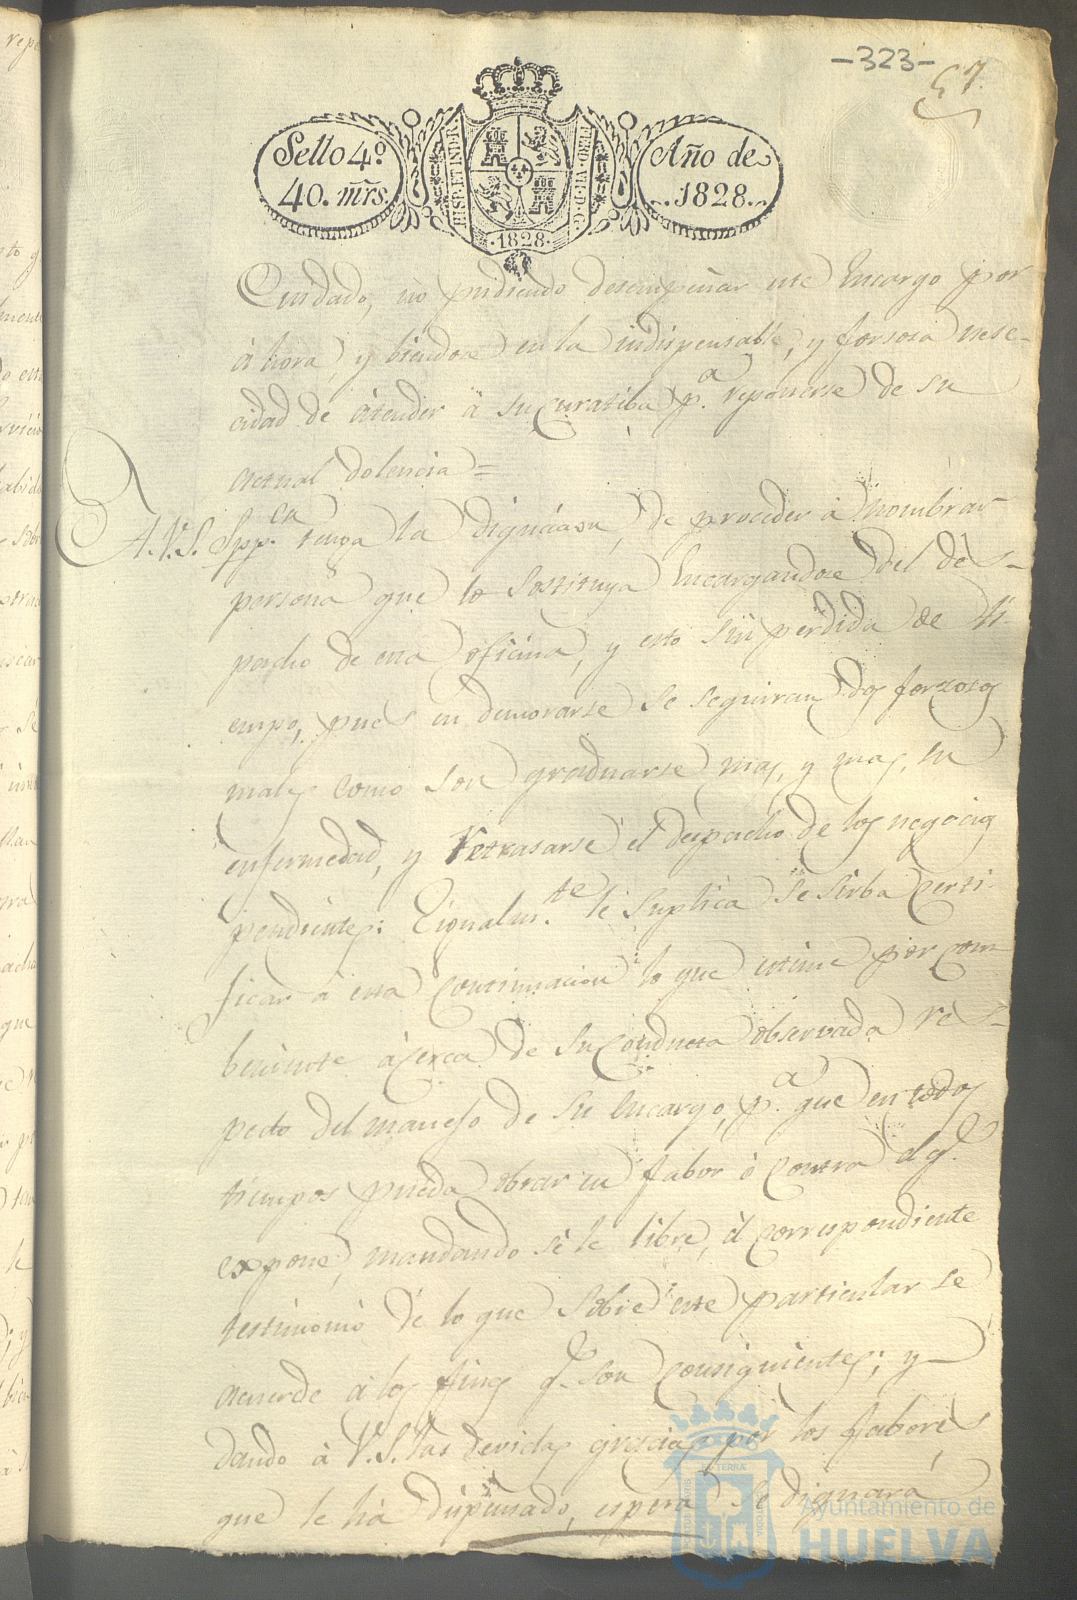 -323-
67
Sello 4.º
40. mrs.
HISP. ET IND. R.
FERD. VII. D. G.
.1828.
Año de
1828.
Cuidado, no pudiendo desempeñar este Encargo por
àhora, y biendose en la indispensable, y forsosa nese-
cidad de àtender à su curatiba p.ª reponerse de su
actual dolencia=
A.V.S. Spp.ca tenga la dignacion, de proceder à nombrar
persona que lo sostituya Encargandose del des-
pacho de esta oficina, y esto sin perdida de ti-
empo, pues en demorarse se seguiran dos forzosos
males como son graduarse mas, y mas, su
enfermedad, y Retrasarse el despacho de los negocios
pendientes: Eigualm.te le suplica se sirba certi-
ficar à esta continuacion lo que estime por com-
beniente àcerca de su conducta observada res-
pecto del manejo de su encargo, p.ª que en todos
tiempos pueda obrar en fabor ò contra el q.e
expone, mandando se le libre, el correspondiente
testimonio de lo que sobre este particular se
acuerde à los fines q.e son consiguientes; y
dando à V.S. las devidas gracias por los fabores
que le hà dispensado, espera se dignarà
Ayuntamiento de
HUELVA